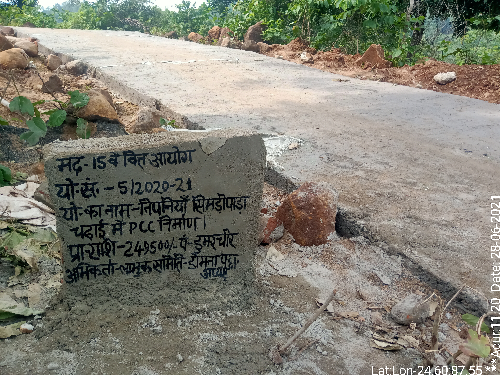 मद- 15 वें वित आयोग
यो.सं.- 5/2020-21
यो. का नाम- निपनियाँ सिमडीपाड़ा
चढ़ाई में PCC निर्माण।
प्रा.राशि- 249500/- पं- डुमरचीर
समिति-
अध्यक्ष
Lat Lon-24.60,87.55 ***Acur:11.20 Date :28-06-2021